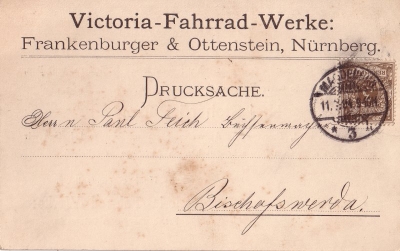 Victoria-Fahrrad-Werke:
Frankenburger & Ottenstein, Nürnberg.
DRUCKSACHE.
Herrn Paul Büchsenmacher
Bischofswerda.